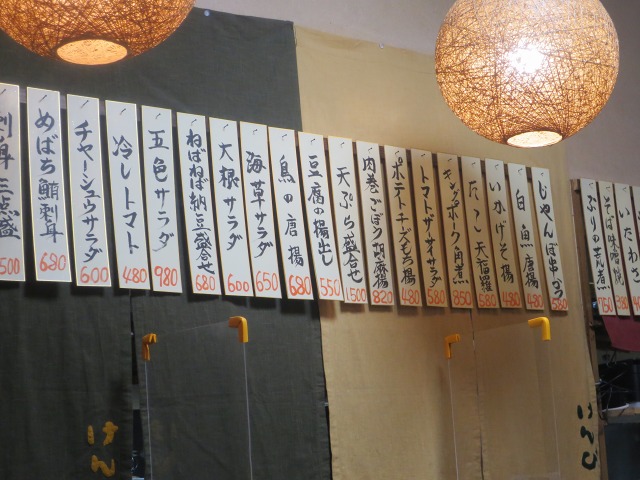 刺身三点盛
500
めばち鮪刺身
680
チャーシュウサラダ
600
冷しトマト
480
五色サラダ
980
ねばねば納豆盛合せ
680
大根サラダ
600
海草サラダ
650
鳥の唐揚
680
豆腐の揚出し
550
天ぷら盛合せ
1500
肉巻ごぼう胡麻揚
820
ポテトチーズもち揚
480
トマトザーサイサラダ
580
キャップポーク角煮
850
たこ天婦羅
580
いかげそ揚
480
白魚唐揚
480
580
ぶりの
750
そば味噌焼
380
いたわさ
けん
けんじ